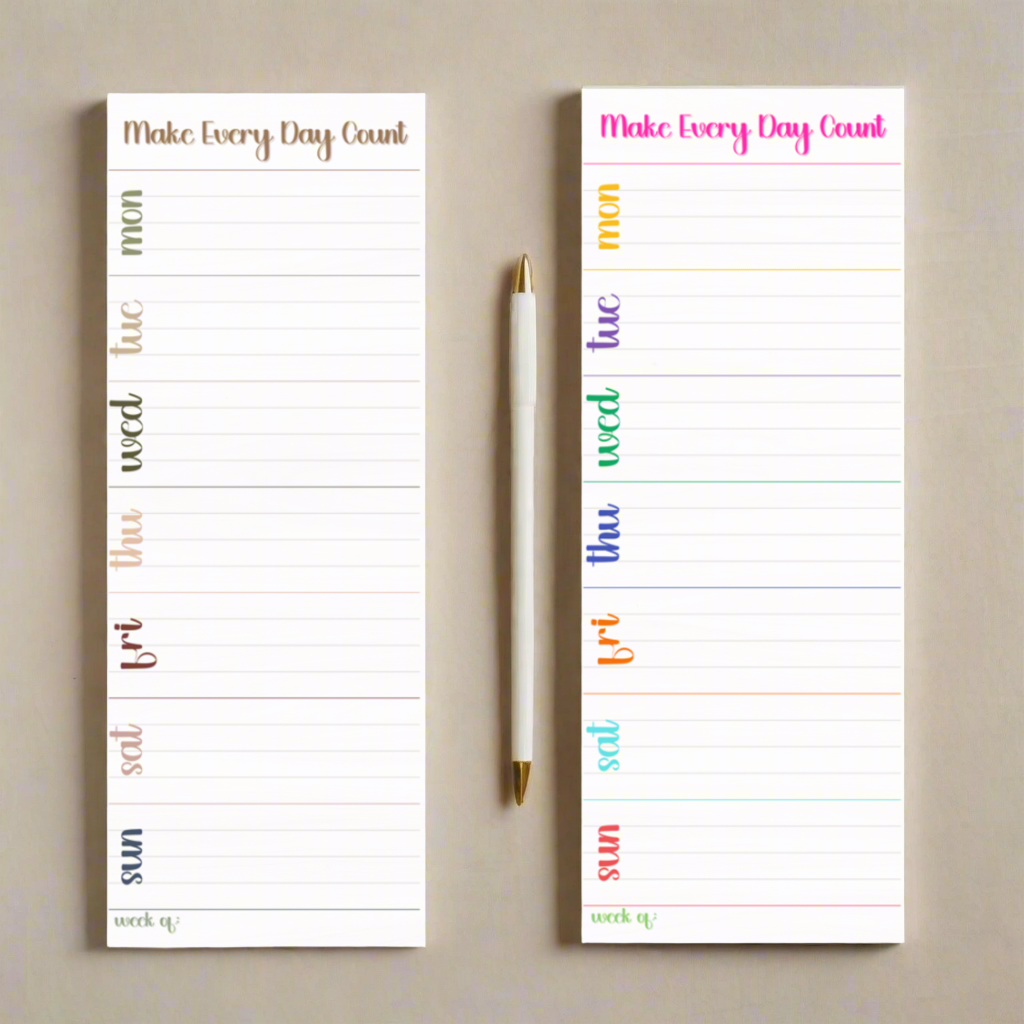 Make Every Day Count
mon
tue
wed
thu
fri
sat
sun
week of:
Make Every Day Count
mon
tue
wed
thu
fri
sat
sun
week of: